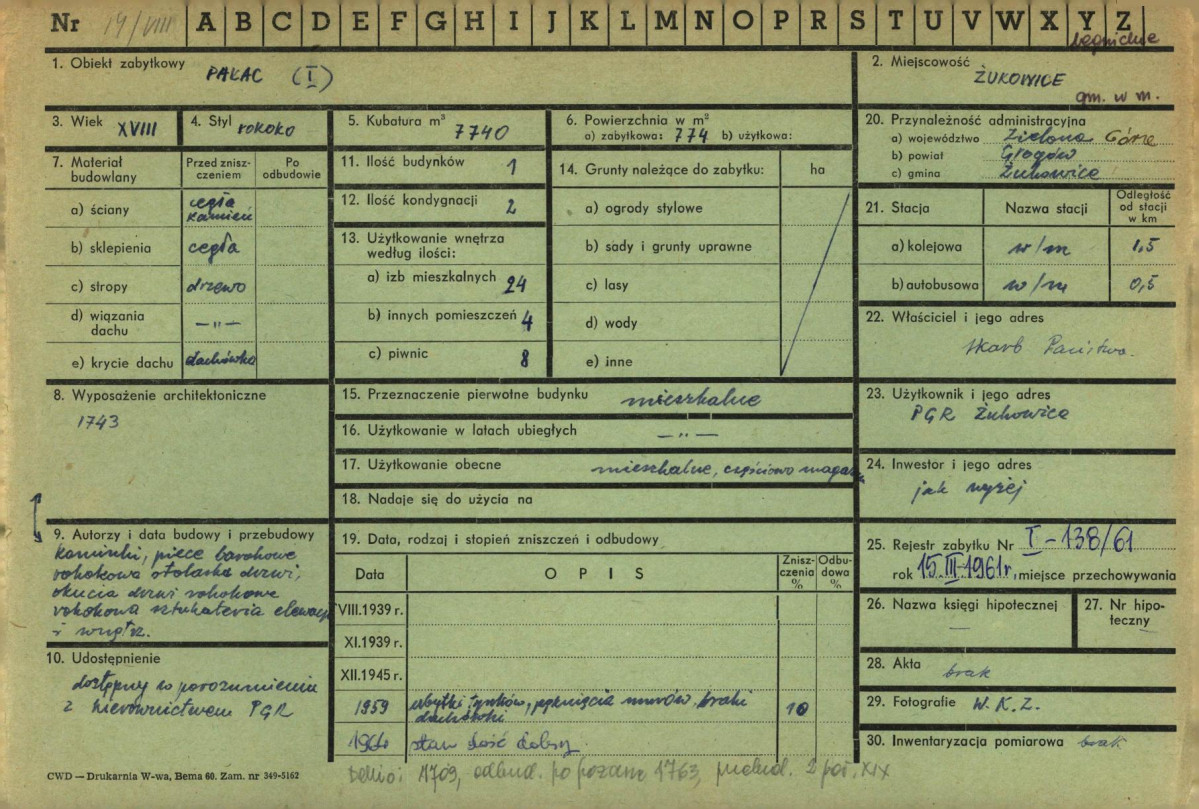 Nr 14/VIII A B C D E F G H I J K L M N O P R S T U V W X Y Z
legnickie
1. Obiekt zabytkowy PAŁAC (I)
2. Miejscowość ŻUKOWICE
gm. w m.
3. Wiek XVIII
4. Styl rokoko
5. Kubatura m³ 7740
6. Powierzchnia w m²
a) zabytkowa: 774 b) użytkowa:
20. Przynależność administracyjna
a) województwo Zielona Góra
b) powiat Głogów
c) gmina Żukowice
7. Materiał budowlany
Przed zniszczeniem
Po odbudowie
a) ściany cegła kamień
b) sklepienia cegła
c) stropy drzewo
d) wiązania dachu —"—
e) krycie dachu dachówka
11. Ilość budynków 1
12. Ilość kondygnacji 2
13. Użytkowanie wnętrza
według ilości:
a) izb mieszkalnych 24
b) innych pomieszczeń 4
c) piwnic 8
14. Grunty należące do zabytku: ha
a) ogrody stylowe
b) sady i grunty uprawne
c) lasy
d) wody
e) inne
21. Stacja Nazwa stacji Odległość od stacji w km
a) kolejowa w/m 1,5
b) autobusowa w/m 0,5
22. Właściciel i jego adres
Skarb Państwa.
8. Wyposażenie architektoniczne
1743
15. Przeznaczenie pierwotne budynku mieszkalne
16. Użytkowanie w latach ubiegłych —"—
17. Użytkowanie obecne mieszkalne, częściowo magaz
18. Nadaje się do użycia na
23. Użytkownik i jego adres
PGR Żukowice
24. Inwestor i jego adres
jak wyżej
9. Autorzy i data budowy i przebudowy
kominki, piece barokowe
rokokowa stolarka drzwi,
okucia drzwi rokokowe
rokokowa sztukateria elewacji
i wnętrz.
10. Udostępnienie
dostępny w porozumieniu
z kierownictwem PGR
19. Data, rodzaj i stopień zniszczeń i odbudowy
Data OPIS Zniszczenia % Odbudowa %
VIII.1939 r.
XI.1939 r.
XII.1945 r.
1959 ubytki tynków, pęknięcia murów, braki
dachówki 10
1960 stan dość dobry
25. Rejestr zabytku Nr I-138/61
rok 15.III.1961r, miejsce przechowywania
26. Nazwa księgi hipotecznej —
27. Nr hipoteczny —
28. Akta brak
29. Fotografie W.K.Z.
30. Inwentaryzacja pomiarowa brak
CWD — Drukarnia W-wa, Bema 60. Zam. nr 349-5162
Dehio: 1709, odbud. po pożarze 1763, przebud. 2 poł. XIX